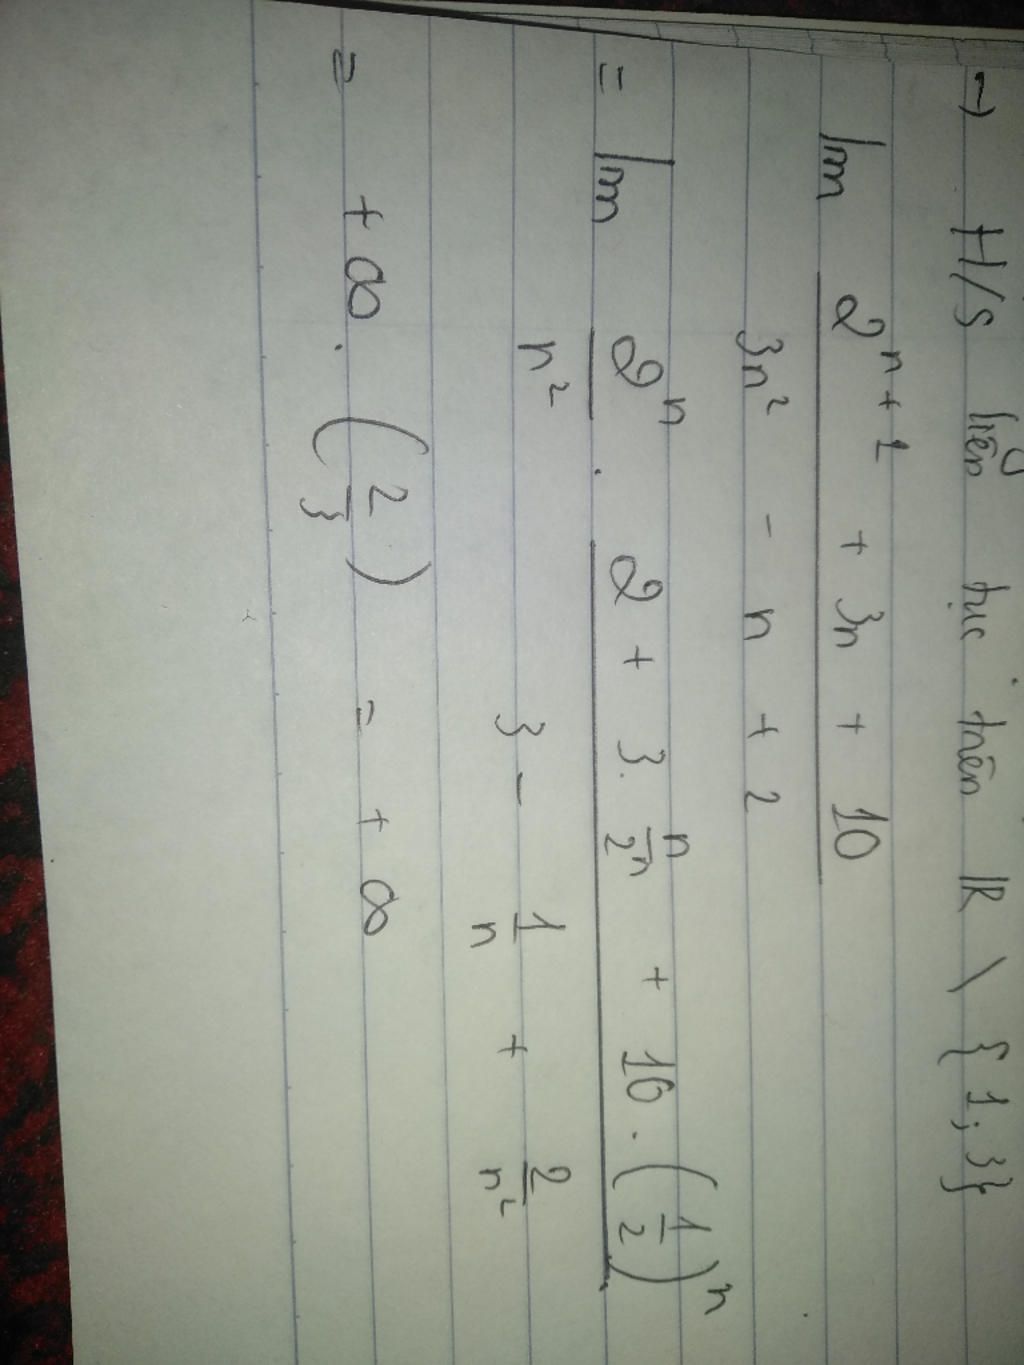 → H/s liên tục trên ℝ \ {1; 3}
lim (2^(n+1) + 3n + 10) / (3n² - n + 2)
= lim 2^n / n² . (2 + 3. n/2^n + 10. (1/2)^n) / (3 - 1/n + 2/n²)
= +∞ . (2/3) = +∞